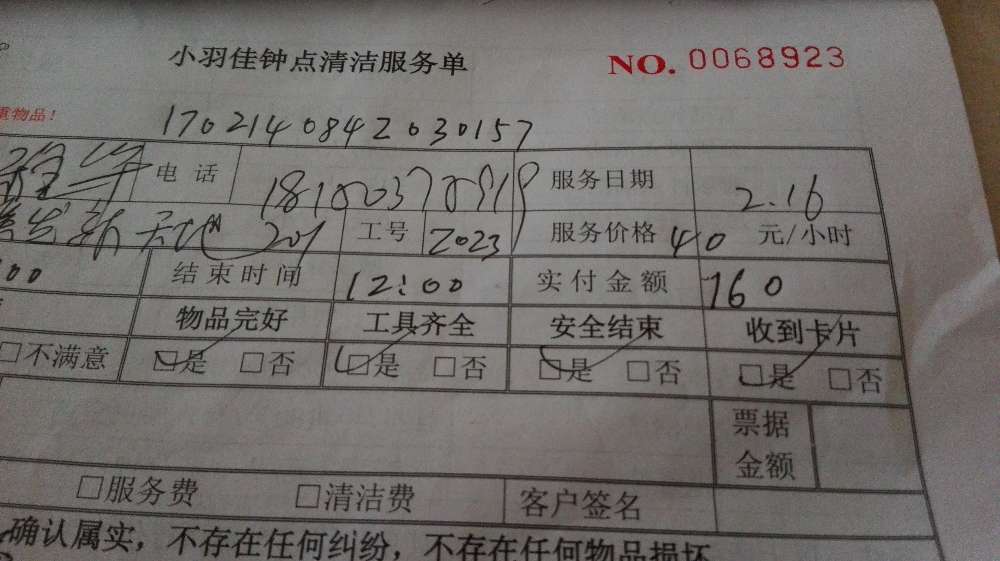 小羽佳钟点清洁服务单 NO. 0068923
重物品!
170214084Z030157
电 话 服务日期 2.16
新天地 201 工号 2023 服务价格 40 元/小时
00 结束时间 12:00 实付金额 160
物品完好 工具齐全 安全结束 收到卡片
□不满意 □是 □否 □是 □否 □是 □否 □是 □否
票据
金额
□服务费 □清洁费 客户签名
确认属实，不存在任何纠纷，不存在任何物品损坏